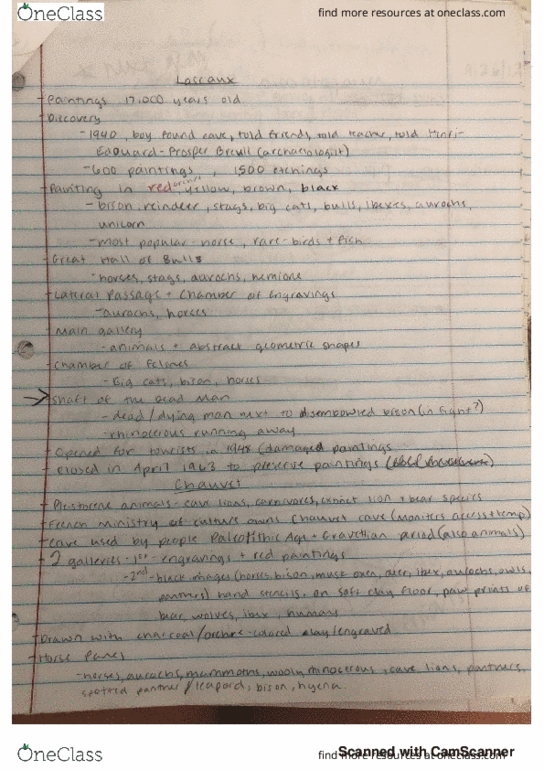 OneClass
find more resources at oneclass.com
Lascaux
Paintings 17.000 years old
Discovery
-1940, boy found cave, told friends, told teacher, told Henri-
Edouard-Prosper Breuil (archaeologist)
-600 paintings, 1500 etchings
Painting in red yellow, brown, black
-bison, reindeer, stags, big cats, bulls, ibexes, aurochs,
unicorn
-most popular-horse, rare-birds + fish
Great Hall of Bulls
-horses, stags, aurochs, hemione
Lateral Passage + Chamber of Engravings
-aurochs, horses
Main gallery
-animals + abstract geometric shapes
Chamber of Felines
-Big cats, bison, horses
Shaft of the Dead Man
-dead/dying man next to disembowled bison (in fight?)
-rhinocerous running away
Opened for tourists in 1948 (damaged paintings
closed in April 1963 to preserve paintings
Chauvet
Pleistocene animals-cave lions, carnivores, extinct lion + bear species
French Ministry of culture owns Chauvet cave (monitors access + temp)
cave used by people Paleolithic Age + Gravettian period (also animals)
2 galleries-1st-engravings + red paintings
-2nd-black images (horses, bison, musk oxen, deer, ibex, aurochs, owls,
hand stencils, on soft clay floor, paw prints of
bear, wolves, ibex, humans
Drawn with charcoal/orchre-colored clay/engraved
Horse Panel
-horses, aurochs, mammoths, wooly rhinocerous, cave lions, panthers,
spotted panther/leapord, bison, hyena
OneClass
find more resources at oneclass.com
Scanned with CamScanner